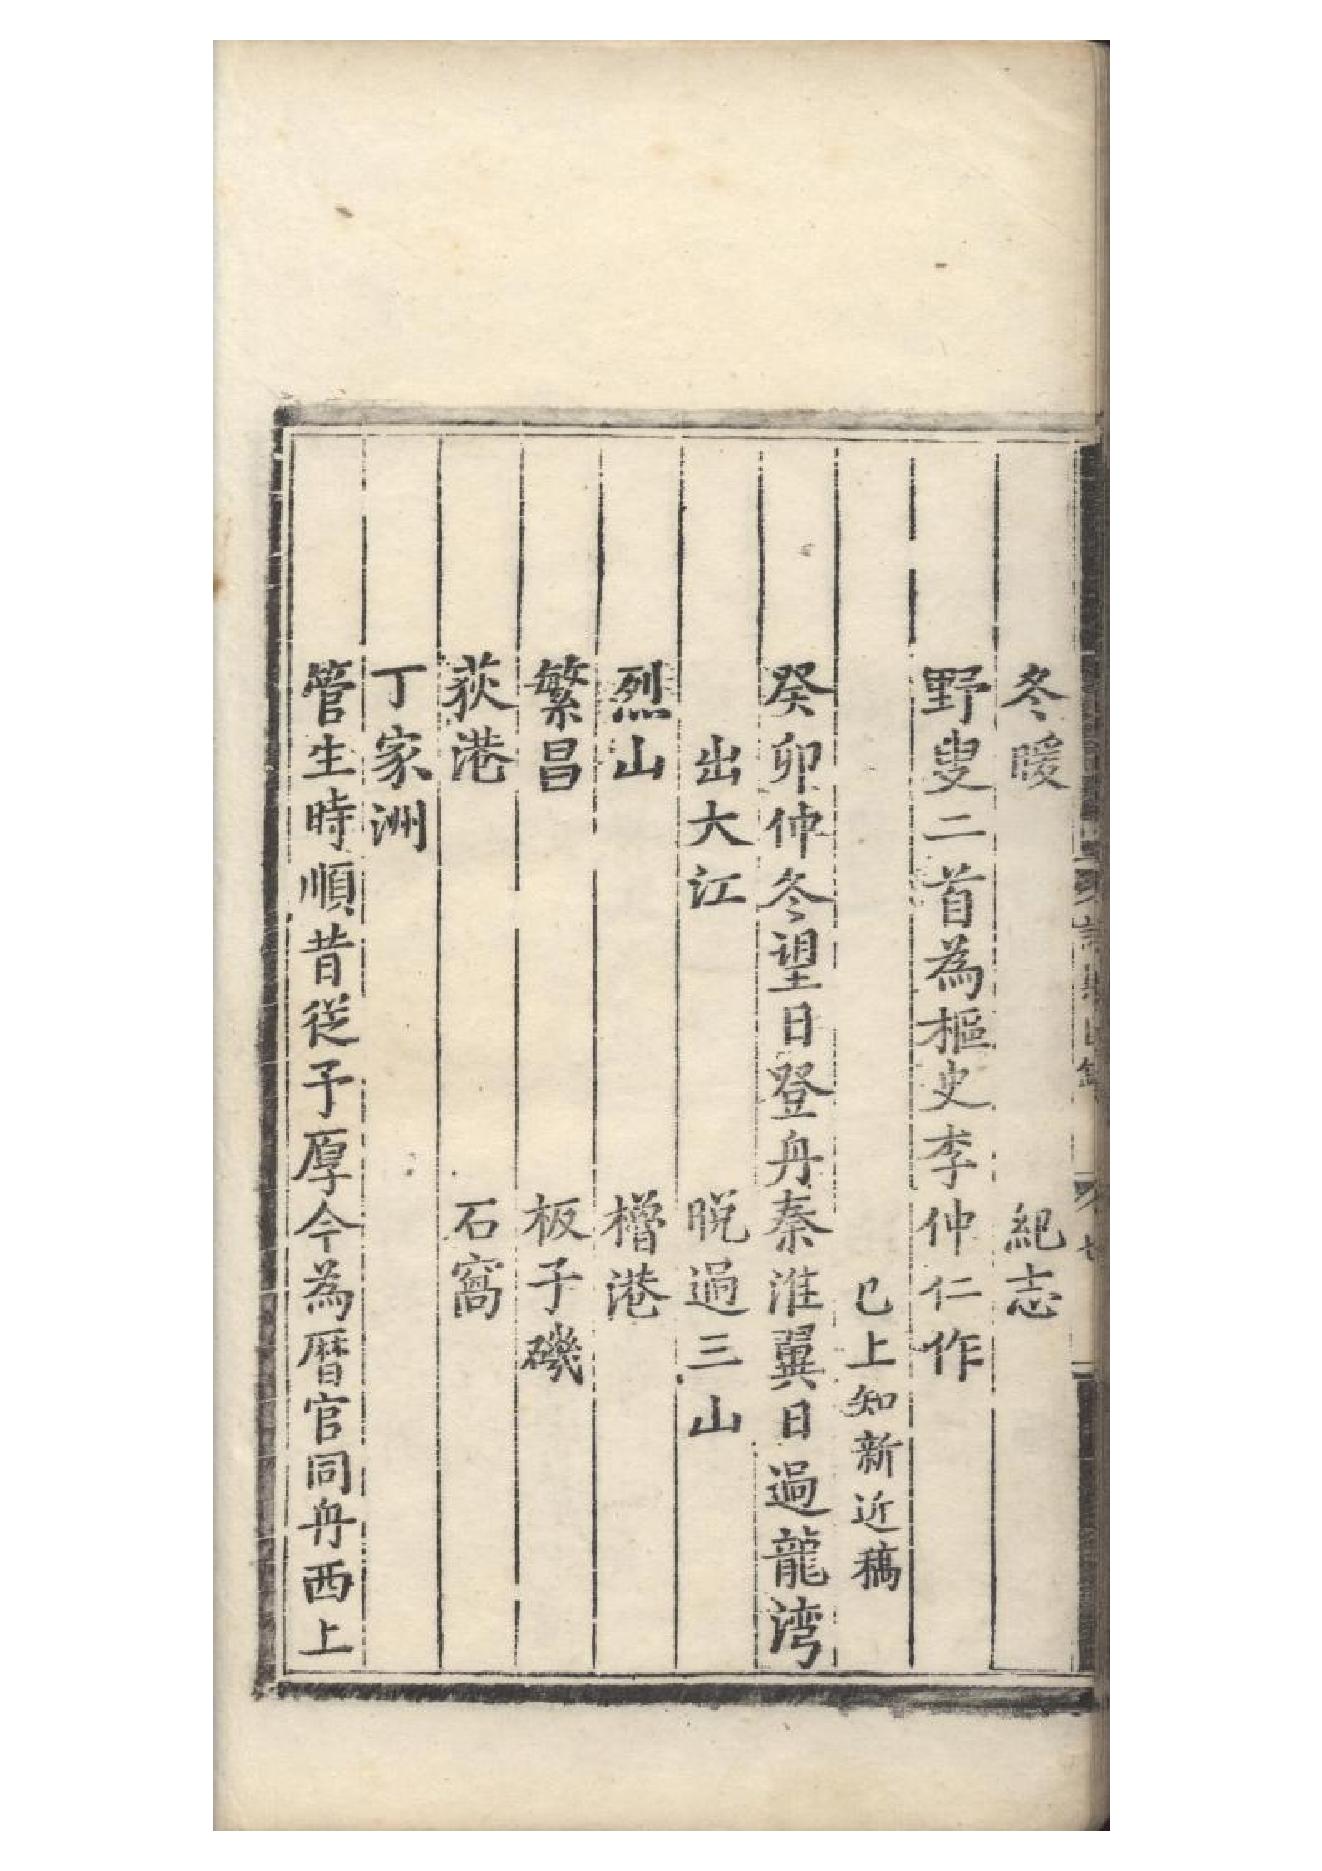 冬暖　紀志
野叟二首為樞史李仲仁作
已上知新近稿
癸卯仲冬望日登舟秦淮翼日過龍湾
出大江　晚過三山
烈山　櫓港
繁昌　板子磯
荻港　石窩
丁家洲
管生時順昔從予厚今為暦官同舟西上